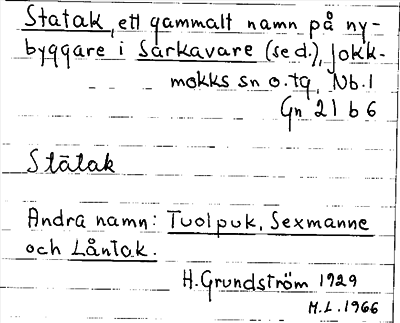 Statak, ett gammalt namn på ny-
byggare i Sarkavare (se d.), Jokk-
mokks sn o. tg, Nb. l
Gn 21 b 6
Stātak
Andra namn: Tuolpuk, Sexmanne
och Låntak.
H. Grundström 1929
M.L. 1966